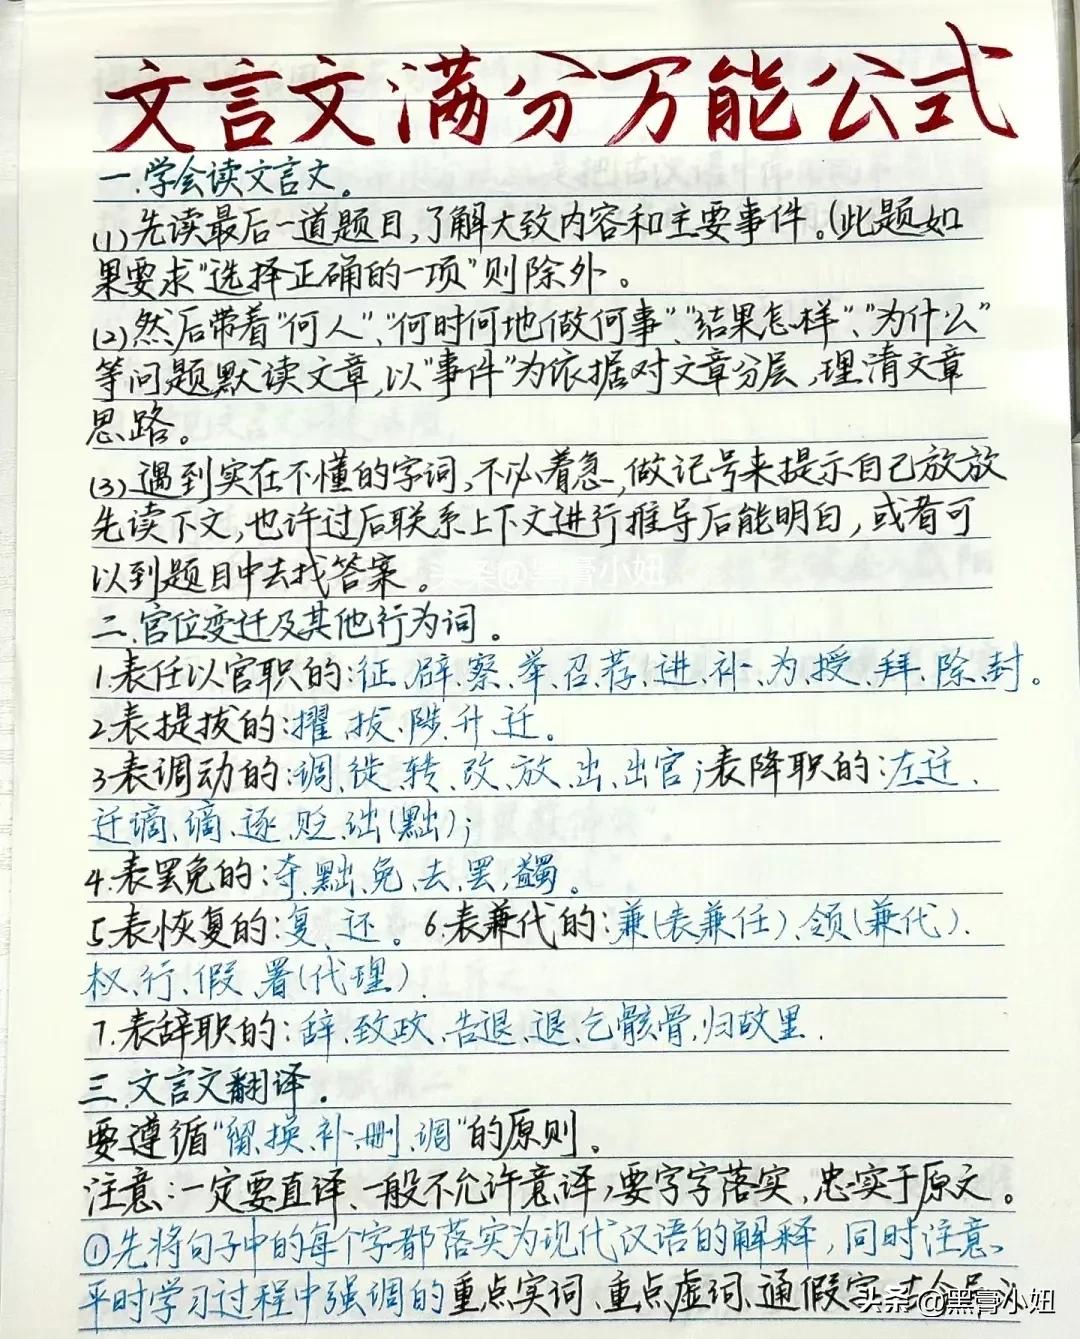 文言文满分万能公式
一.学会读文言文。
(1)先读最后一道题目,了解大致内容和主要事件。(此题如
果要求"选择正确的一项"则除外。
(2)然后带着"何人"、"何时何地做何事"、"结果怎样"、"为什么"
等问题默读文章,以"事件"为依据对文章分层,理清文章
思路。
(3)遇到实在不懂的字词,不必着急,做记号来提示自己放放
先读下文,也许过后联系上下文进行推导后能明白,或者可
以到题目中去找答案。
头条@黑膏小妞
二.官位变迁及其他行为词。
1.表任以官职的:征、辟、察、举、召、荐、进、补、为、授、拜、除、封。
2.表提拔的:擢、拔、陟、升、迁。
3.表调动的:调、徙、转、改、放、出、出官;表降职的:左迁、
迁谪、谪、逐、贬、绌(黜);
4.表罢免的:夺、黜、免、去、罢、蠲。
5.表恢复的:复、还。6.表兼代的:兼(表兼任)、领(兼代)、
权、行、假、署(代理).
7.表辞职的:辞、致政、告退、退、乞骸骨、归故里.
三.文言文翻译。
要遵循"留、换、补、删、调"的原则。
注意:一定要直译、一般不允许意译,要字字落实、忠实于原文。
①先将句子中的每个字都落实为现代汉语的解释,同时注意
平时学习过程中强调的重点实词、重点虚词、通假字、
头条@黑膏小妞